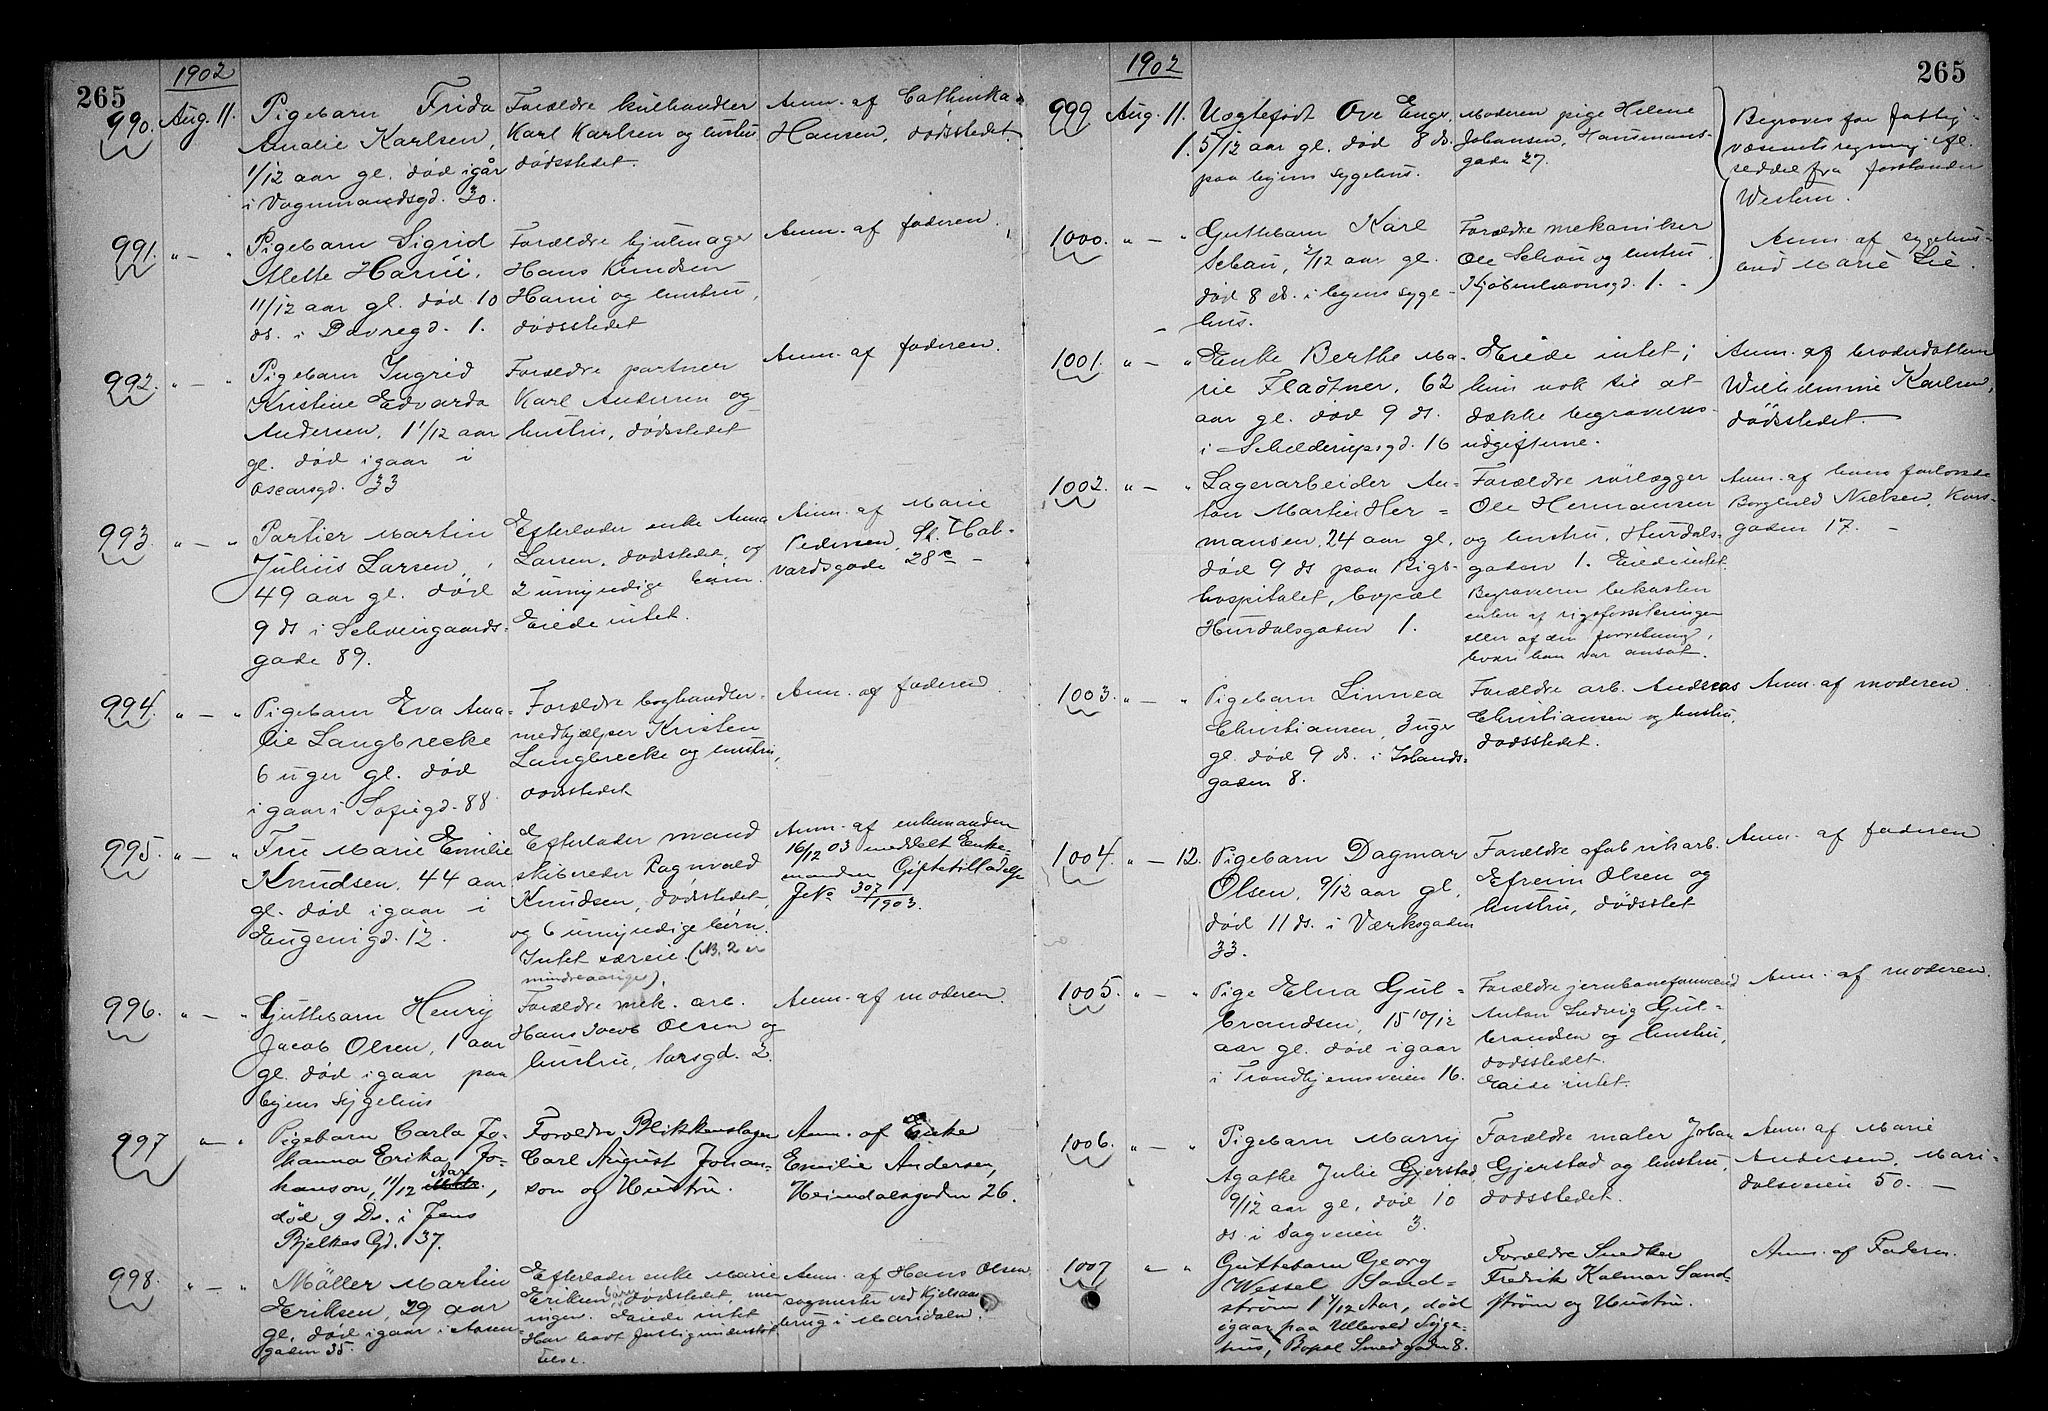 265
1902
990. Aug. 11.
Pigebarn Frida
Amalie Karlsen,
1/12 aar gl. død igår
i Vognmandsgd. 30.
Forældre kulhandler
Karl Karlsen og hustru
dødsstedet.
Anm. af Cathinka
Hansen, dødsstedet.
991. " — "
Pigebarn Sigrid
Alette
11/12 aar gl. død 10
ds. i Dovregd. 1.
Forældre hjulmager
Hans Knudsen
og hustru,
dødsstedet
Anm. af faderen.
992. " — "
Pigebarn Ingrid
Kristine Edvarda
Andersen, 1 1/12 aar
gl. død igaar i
Oscarsgd. 33
Forældre portner
Karl Andersen og
hustru, dødsstedet
Anm. af faderen.
993. " — "
Portier Martin
Julius Larsen,
49 aar gl. død
9 ds i Schweigaards-
gade 89.
Efterlader enke Anna
Larsen, dødsstedet, og
2 umyndige børn.
Eiede intet.
Anm. af Marie
Pedersen, St. Hal-
vardsgade 28c —
994. " — "
Pigebarn Eva Ama=
lie Langbrecke
6 uger gl. død
igaar i Sofiegd. 88
Forældre boghandler-
medhjælper Kristen
Langbrecke og hustru,
dødsstedet
Anm. af faderen.
995. " — "
Fru Marie Emilie
Knudsen, 44 aar
gl. død igaar i
Eugenigd. 12.
Efterlader mand
skibsreder Ragnvald
Knudsen, dødsstedet,
og 6 umyndige børn.
Intet særeie. (NB. 2 er
mindreaarige).
Anm. af enkemanden
16/12 03 meddelt Enke-
manden Giftetilladelse
J.No 307/1903.
996. " — "
Guttebarn Henry
Jacob Olsen, 1 aar
gl. død igaar paa
byens sygehus
Forældre mek. arb.
Hans Jacob Olsen og
hustru, Torsgd. 2.
Anm. af moderen.
997 " — "
Pigebarn Carla Jo-
hanna Erika Jo-
hanson, 11/12 Aar,
død 9 Ds. i Jens
Bjelkes Gd. 37.
Forældre Blikkenslager
Carl August Johan-
son og Hustru.
Anm. af Enke
Emilie Andersen,
Heimdalsgaden 26.
998. " — "
Möller Martin
Eriksen, 29 aar
gl. død igaar i Aasen-
gaden 35.
Efterlader enke Marie
Eriksen, dødsstedet, men
ingen. Eiede intet
Har havt fattigunderstøt
telse.
Anm. af Hans Olsen,
sagmester ved Kjelsaas
brug i Maridalen.
265
1902
999 Aug. 11.
Uægtefødt Ove Enger,
1 5/12 aar gl. død 8 ds.
paa byens sygehus.
Moderen pige Helene
Johansen, Hausmans-
gade 27.
Begraves for fattig-
væsenets regning ifl.
seddel fra forstander
Western.
1000. " — "
Guttebarn Karl
Schau, 2/12 aar gl.
død 8 ds. i byens syge-
hus.
Forældre mekaniker
Ole Schou og hustru,
Kjøbenhavnsgd. 1. -
Anm. af sygehus-
bud Marie Lie.
1001. " — "
Enke Berthe Ma-
rie Fladtner, 62
aar gl. død 9 ds.
i Schelderupsgd. 16
Eiede intet;
kun nok til at
dække begravelses-
udgifterne.
Anm. af broderdatteren
Wilhelmine Karlsen,
dødsstedet.
1002. " — "
Lagerarbeider An=
ton Martin Her=
mansen, 24 aar gl.
død 9 ds paa Rigs-
hospitalet, bopæl
Hurdalsgaden 1.
Forældre rørlægger
Ole Hermansen
og hustru, Hurdals-
gaden 1. Eiede intet.
Begravelsen bekostes
enten af rigsforsikringen
eller af den forretning,
hvori han var ansat.
Anm. af hans forlovede
Borghild Nielsen, Kors-
gaden 17. —
1003. " — "
Pigebarn Linnea
Christiansen, 3 uger
gl. død 9 ds. i Islands-
gaden 8.
Forældre arb. Andreas
Christiansen og hustru,
dødsstedet.
Anm. af moderen.
1004. " — 12.
Pigebarn Dagmar
Olsen, 9/12 aar gl.
død 11 ds. i Værksgaden
33.
Forældre fabrikarb.
Efreim Olsen og
hustru, dødsstet
Anm. af faderen
1005. " — "
Pige Elna Gul=
brandsen, 15 10/12
aar gl. død igaar
i Trondhjemsveien 16.
Forældre jernbaneformand
Anton Ludvig Gul=
brandsen og hustru,
dødsstedet.
Eiede intet.
Anm. af moderen.
1006. " — "
Pigebarn Marry
Agathe Julie Gjerstad
9/12 aar gl, død 10
ds. i Sagveien 3.
Forældre maler Johan
Gjerstad og hustru,
dødsstedet.
Anm. af Marie
Andersen, Mari-
dalsveien 50. —
1007 " — "
Guttebarn Georg
Wessel Sand=
strøm 1 4/12 Aar, død
igaar paa Ullevold Syge-
hus, Bopæl Smedgaden 8.
Forældre Snedker
Fredrik Kalmar Sand-
strøm og Hustru.
Anm. af Faderen.